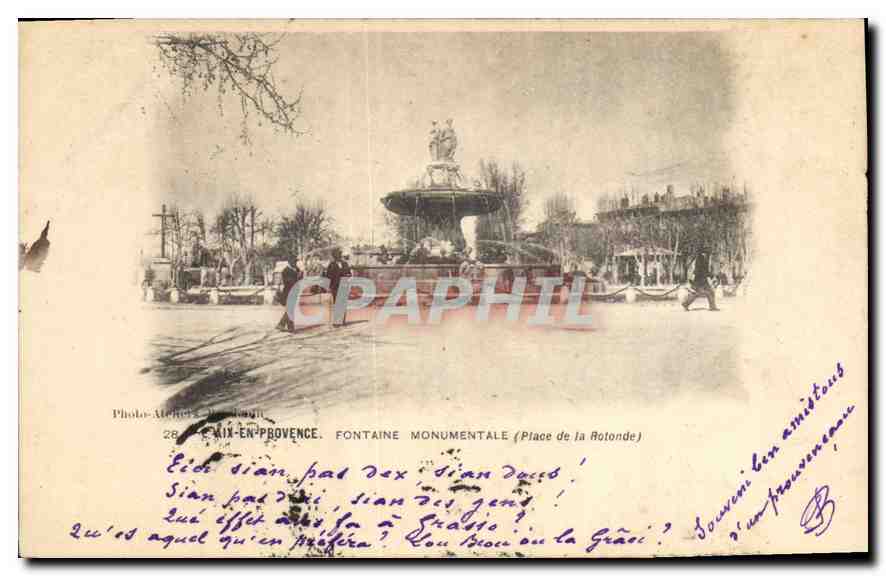 CaPHIL
Photo-Ateliers
28 AIX-EN-PROVENCE. FONTAINE MONUMENTALE (Place de la Rotonde)
Eici sian pas dex, sian dous!
Sian pas d'ici, sian des gens!
Qué effet a fa à Grasso?
Qu'es aquel qu'en préféra? Lou Beou ou la Grâci?
Souveni ben amistous
d'un prouvençau